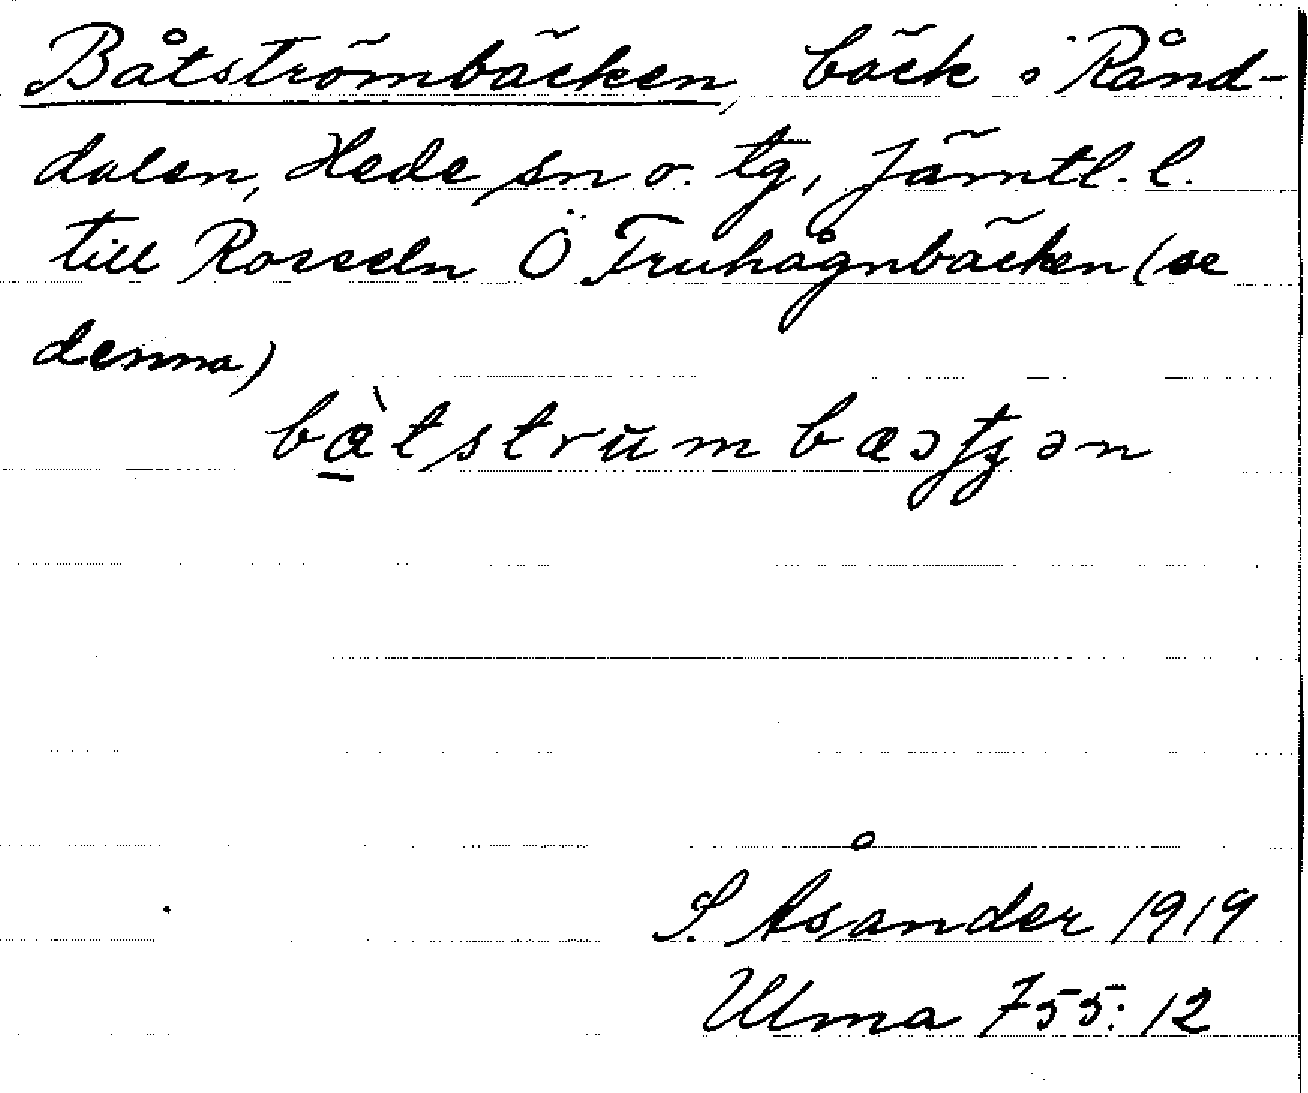 Båtströmbäcken, bäck i Rånd-
dalen, Hede sn o. tg, Jämtl. l.
till Rosseln Ö Fruhågnbäcken (se
denna)
bàtstrum bæɔʃʒən
S. Åsander 1919
Ulma 755:12